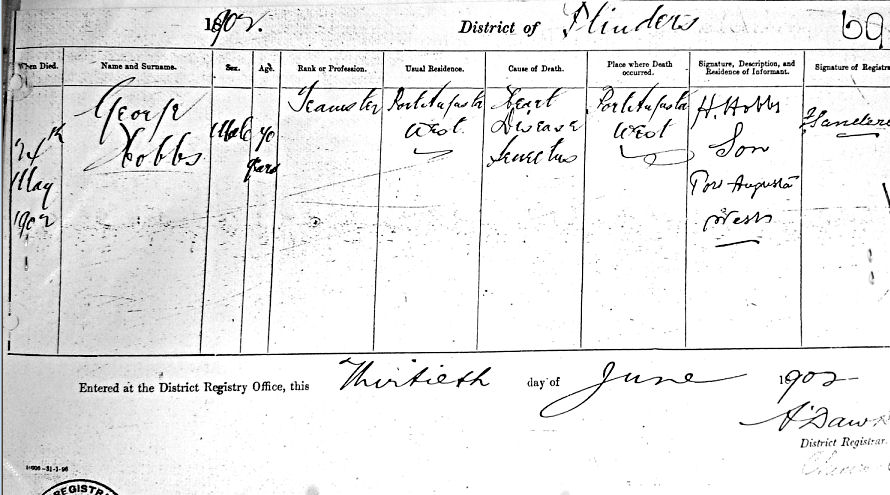 1902. District of Flinders 69
When Died. Name and Surname. Sex. Age. Rank or Profession. Usual Residence. Cause of Death. Place where Death occurred. Signature, Description, and Residence of Informant. Signature of Registra
24th May 1902
George Hobbs
Male
70 years
Teamster
Port Augusta West
Heart Disease Senectus
Port Augusta West
H. Hobbs
Son
Port Augusta
West
Sanders
Entered at the District Registry Office, this Thirtieth day of June 1902
Daw
District Registrar.
REGISTRA